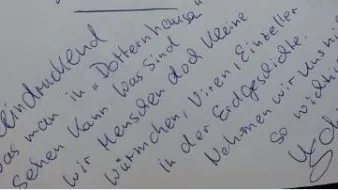 eindruckend
was man in "Dotternhausen"
sehen kann. Was sind
wir Menschen doch kleine
Würmchen, Viren, Einzeller
in der Erdgeschichte.
Nehmen wir uns nicht
so wichtig